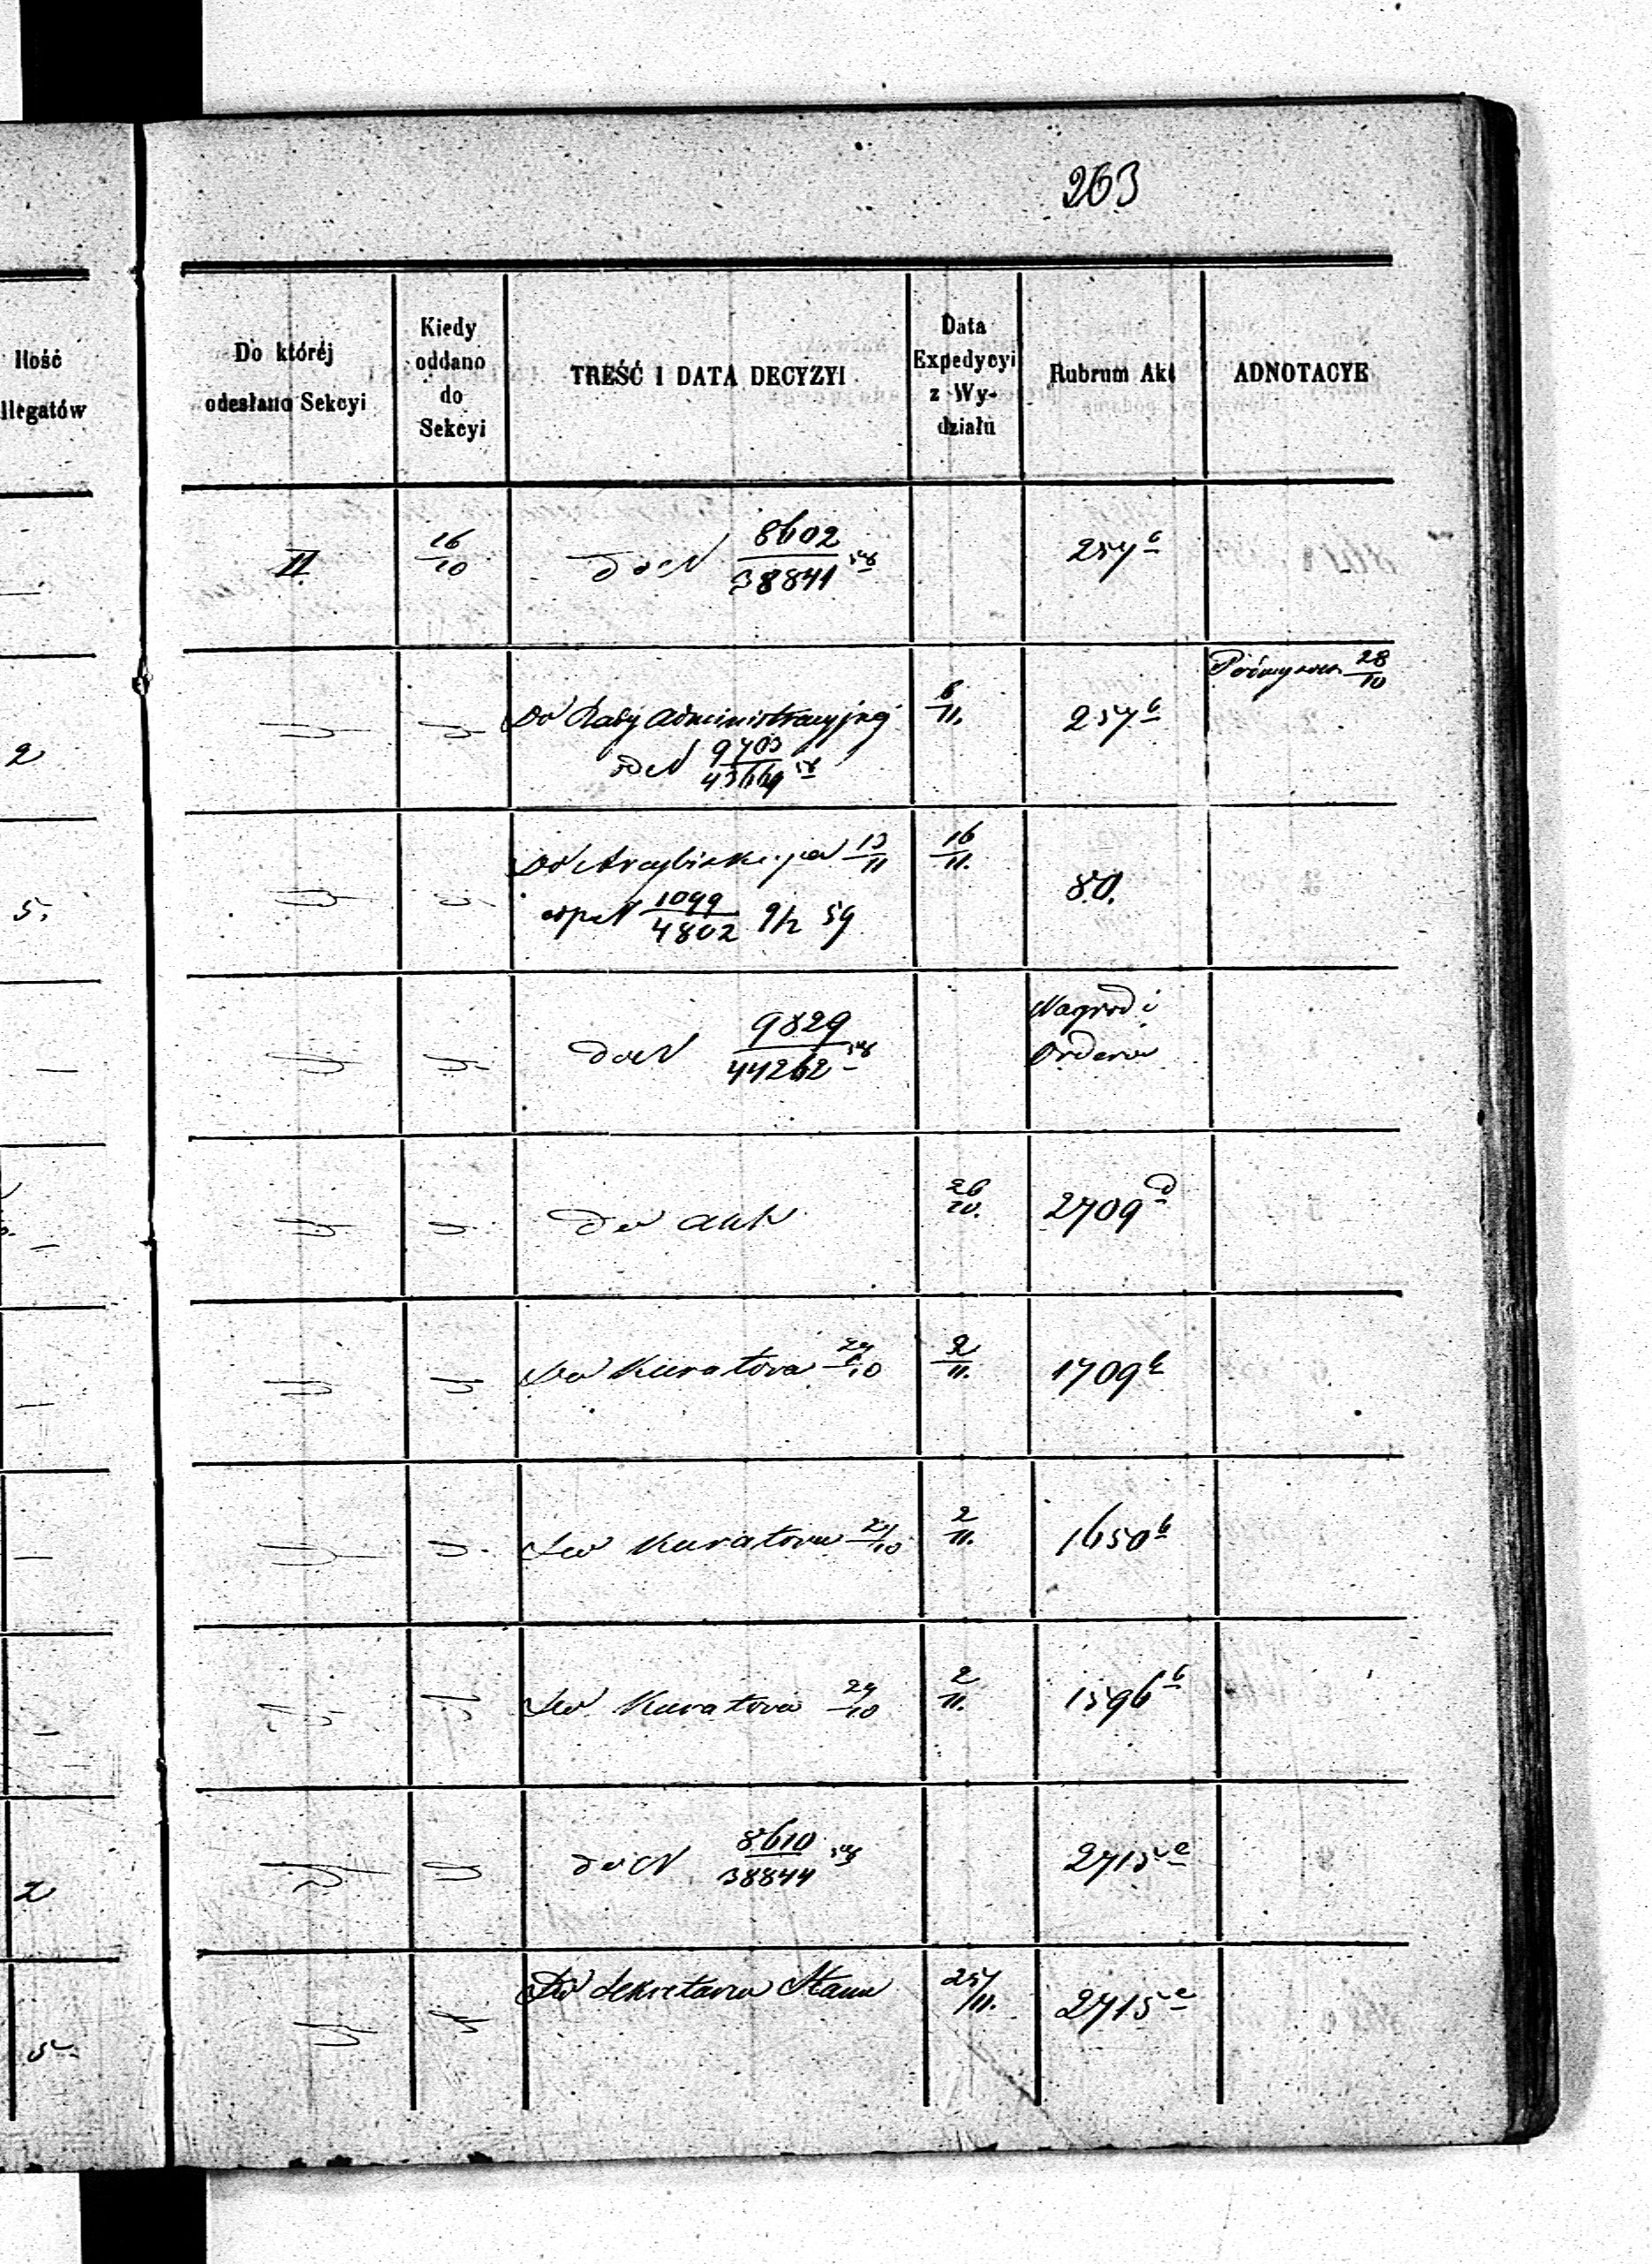 263
Ilość
llegatów
Do któréj
odesłano Sekcyi
Kiedy
oddano
do
Sekcyi
TREŚĆ I DATA DECYZYI
Data
Expedycyi
z Wy-
działu
Rubrum Akt
ADNOTACYE
II.
16/10
do N 8602/38841
257 b
2
Do Rady Administracyjnej
do N
6/11.
257 b
28/10
5.
13/11
N 1099/4802 59
16/11.
80.
do N 9829/44262
Nagrod i
Orderów
do akt
26/10.
2709 d
Do Kuratora 24/10
2/11.
1709 b
Do Kuratora 24/10
2/11.
1650 b
Do Kuratora 24/10
2/11.
1596 b
2
do N 8610/38844
2715 e
5
Do Sekretarza Stanu
25/11.
2715 e